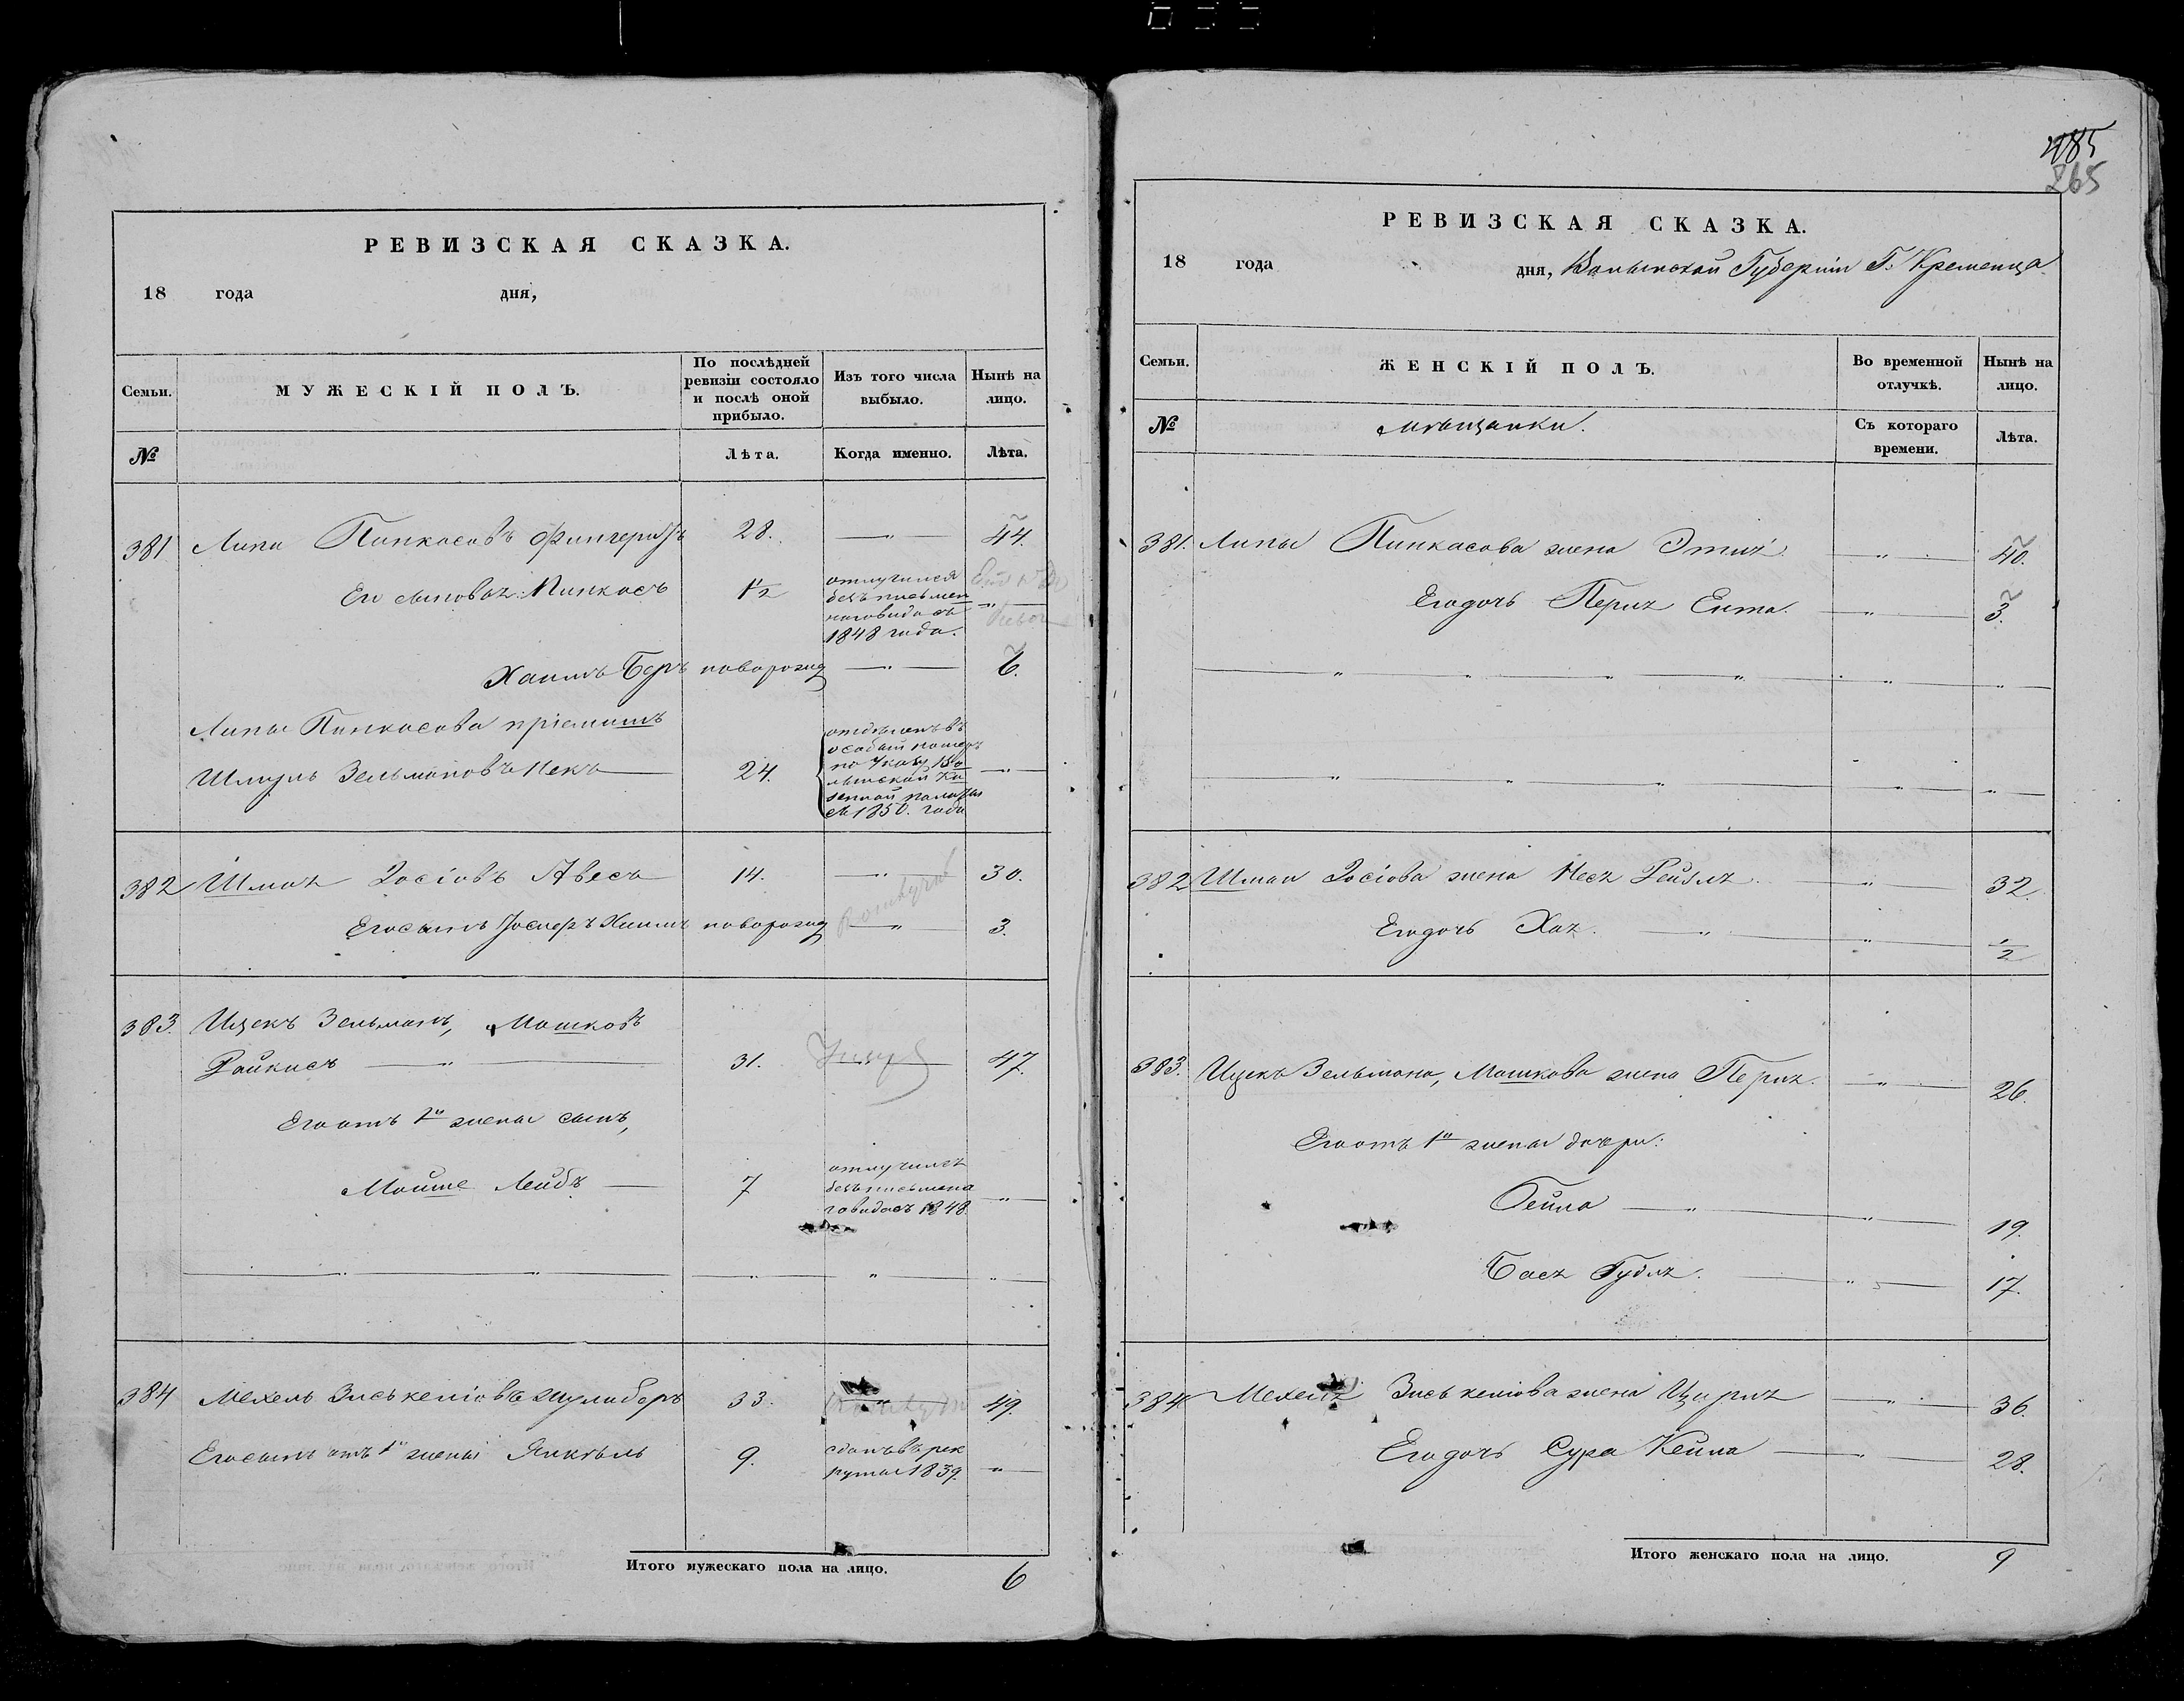 485
265
РЕВИЗСКАЯ СКАЗКА.
18 года дня,
Семьи. МУЖЕСКІЙ ПОЛЪ. По послѣдней ревизіи состояло и послѣ оной прибыло. Изъ того числа выбыло. Нынѣ на лицо.
№ Лѣта. Когда именно. Лѣта.
381 Липа Пинкасовъ 28. — " — 44.
Его сыновья: Пинкасъ 1½ отлучился
безъ письмен
наговида съ
1848 года. "
Хаимъ Беръ новорожд — " — 6.
Липы Пинкасова пріемышъ
Шмуль Зельмановъ 24. отдѣленъ въ
особый номеръ
по Указу Во
лынской Ка
зенной палаты
1850. года — " —
382 Шмая Іосіовъ Авесъ 14. — " — 30.
Его сынъ Хаимъ новорожд — " — 3.
383. Ицекъ Зельманъ, Мошковъ
Райкисъ — " — 31. 47.
Его отъ 1й жены сынъ,
Мойше Лейбъ — 7 отлучился
безъ письмена
говида съ 1848 — " —
384 Мехель 33. — " — 49.
Его сынъ отъ 1й жены Янкель 9. сданъ въ рек
руты 1839. "
Итого мужескаго пола на лицо. 6
РЕВИЗСКАЯ СКАЗКА.
18 года дня, Волынской Губерніи Г. Кременца
Семьи. ЖЕНСКІЙ ПОЛЪ. Во временной отлучкѣ. Нынѣ на лицо.
№ Мѣщанки. Съ котораго времени. Лѣта.
381. Липы Пинкасова жена Этя — " — 40.
Его дочь Перля Ента. — " — 3.
382 Шмаи Іосіова жена Нася Рейзля — " — 32.
Его дочь Хая. — " — ½
383. Ицека Зельмана, Мошкова жена Перля. — " — 26.
Его отъ 1й жены дочери:
Гейла — " — 19.
Бася Гудля. — " — 17.
384 Мехеля жена Цирля — " — 36.
Его дочь Сура Кейла — " — 28.
Итого женскаго пола на лицо. 9